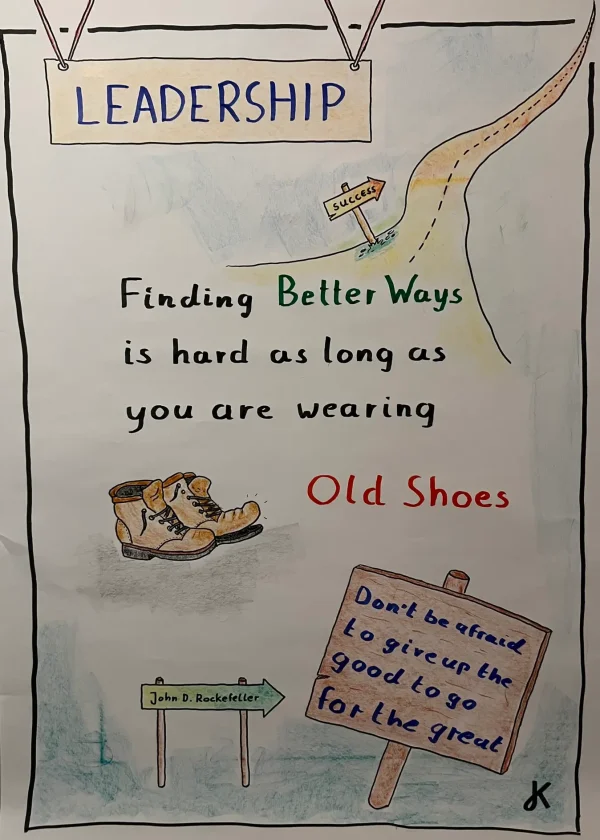 LEADERSHIP
success
Finding Better Ways
is hard as long as
you are wearing
Old Shoes
Don't be afraid
to give up the
good to go
for the great
John D. Rockefeller
JK